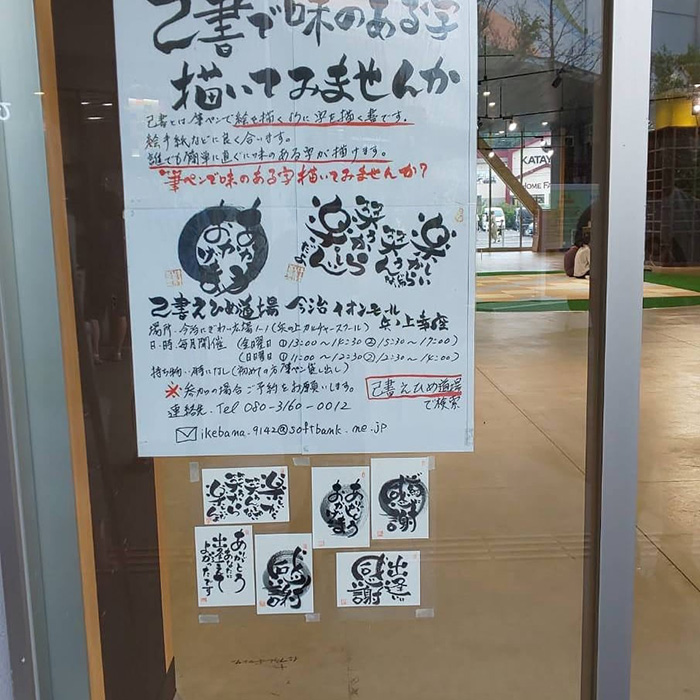 己書で味のある字
描いてみませんか
己書とは筆ペンで絵を描く様に字を描く書です。
絵手紙などに良く合います。
誰でも簡単に直ぐに味のある字が描けます。
筆ペンで味のある字描いてみませんか?
ありがとう
おかげさま
己書えひめ道場 今治イオンモール
場所.今治にぎわい広場1-1(井の上カルチャースクール)
日.時.毎月開催 (金曜日 ①13:00~14:30 ②15:30~17:00)
(日曜日 ①11:00~12:30 ②12:30~14:00)
持ち物い.特になし(初めての方筆ペン貸し出し)
※参加の場合ご予約をお願いします。
己書えひめ道場
で検索
連絡先.Tel 080-3160-0012
ikebana.9142@softbank.ne.jp
感謝
ありがとう
あなたに
出逢えて
よかったです
感謝
出逢いに
感謝
KATAY
HOME FA